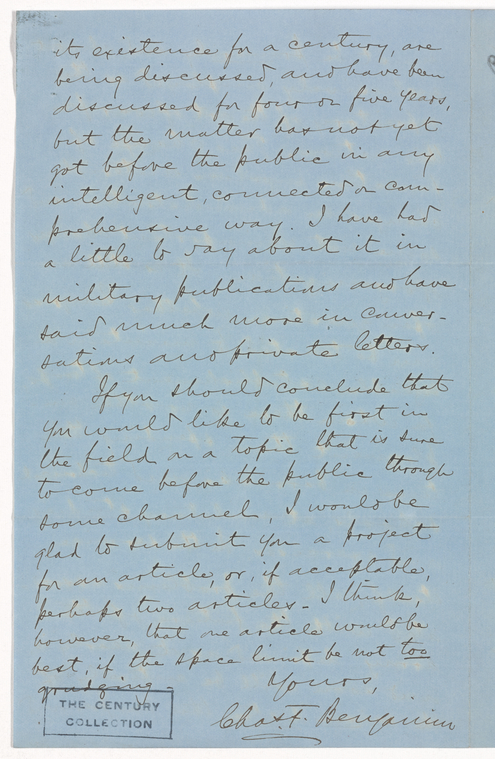 its existence for a century, are
being discussed, and have been
discussed for four or five years,
but the matter has not yet
got before the public in any
intelligent, connected or com-
prehensive way. I have had
a little to say about it in
military publications and have
said much more in conver-
sations and private letters.
If you should conclude that
you would like to be first in
the field on a topic that is sure
to come before the public through
some channel, I would be
glad to submit you a project
for an article, or, if acceptable,
perhaps two articles - I think,
however, that one article would be
best, if the space limit be not too
grudging -
Yours,
Chas. F. Benjamin
THE CENTURY
COLLECTION